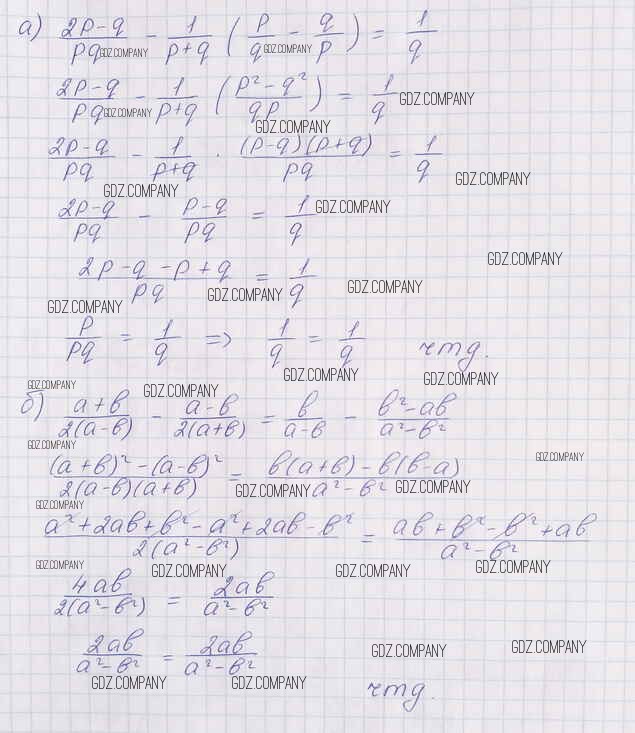 а) (2p-q)/(pq) - 1/(p+q) (p/q - q/p) = 1/q
GDZ.COMPANY GDZ.COMPANY
(2p-q)/(pq) - 1/(p+q) ((p²-q²)/(qp)) = 1/q GDZ.COMPANY
GDZ.COMPANY
GDZ.COMPANY
(2p-q)/(pq) - 1/(p+q) · ((p-q)(p+q))/(pq) = 1/q
GDZ.COMPANY GDZ.COMPANY
(2p-q)/(pq) - (p-q)/(pq) = 1/q GDZ.COMPANY
GDZ.COMPANY
(2p-q-p+q)/(pq) = 1/q
GDZ.COMPANY GDZ.COMPANY GDZ.COMPANY
p/(pq) = 1/q => 1/q = 1/q чтд.
GDZ.COMPANY GDZ.COMPANY
GDZ.COMPANY GDZ.COMPANY
б) (a+b)/(2(a-b)) - (a-b)/(2(a+b)) = b/(a-b) - (b²-ab)/(a²-b²)
GDZ.COMPANY GDZ.COMPANY
((a+b)²-(a-b)²)/(2(a-b)(a+b)) = (b(a+b)-b(b-a))/(a²-b²)
GDZ.COMPANY GDZ.COMPANY
GDZ.COMPANY
(a²+2ab+b²-a²+2ab-b²)/(2(a²-b²)) = (ab+b²-b²+ab)/(a²-b²)
GDZ.COMPANY GDZ.COMPANY GDZ.COMPANY GDZ.COMPANY
(4ab)/(2(a²-b²)) = (2ab)/(a²-b²)
(2ab)/(a²-b²) = (2ab)/(a²-b²)
GDZ.COMPANY GDZ.COMPANY
GDZ.COMPANY GDZ.COMPANY
чтд.